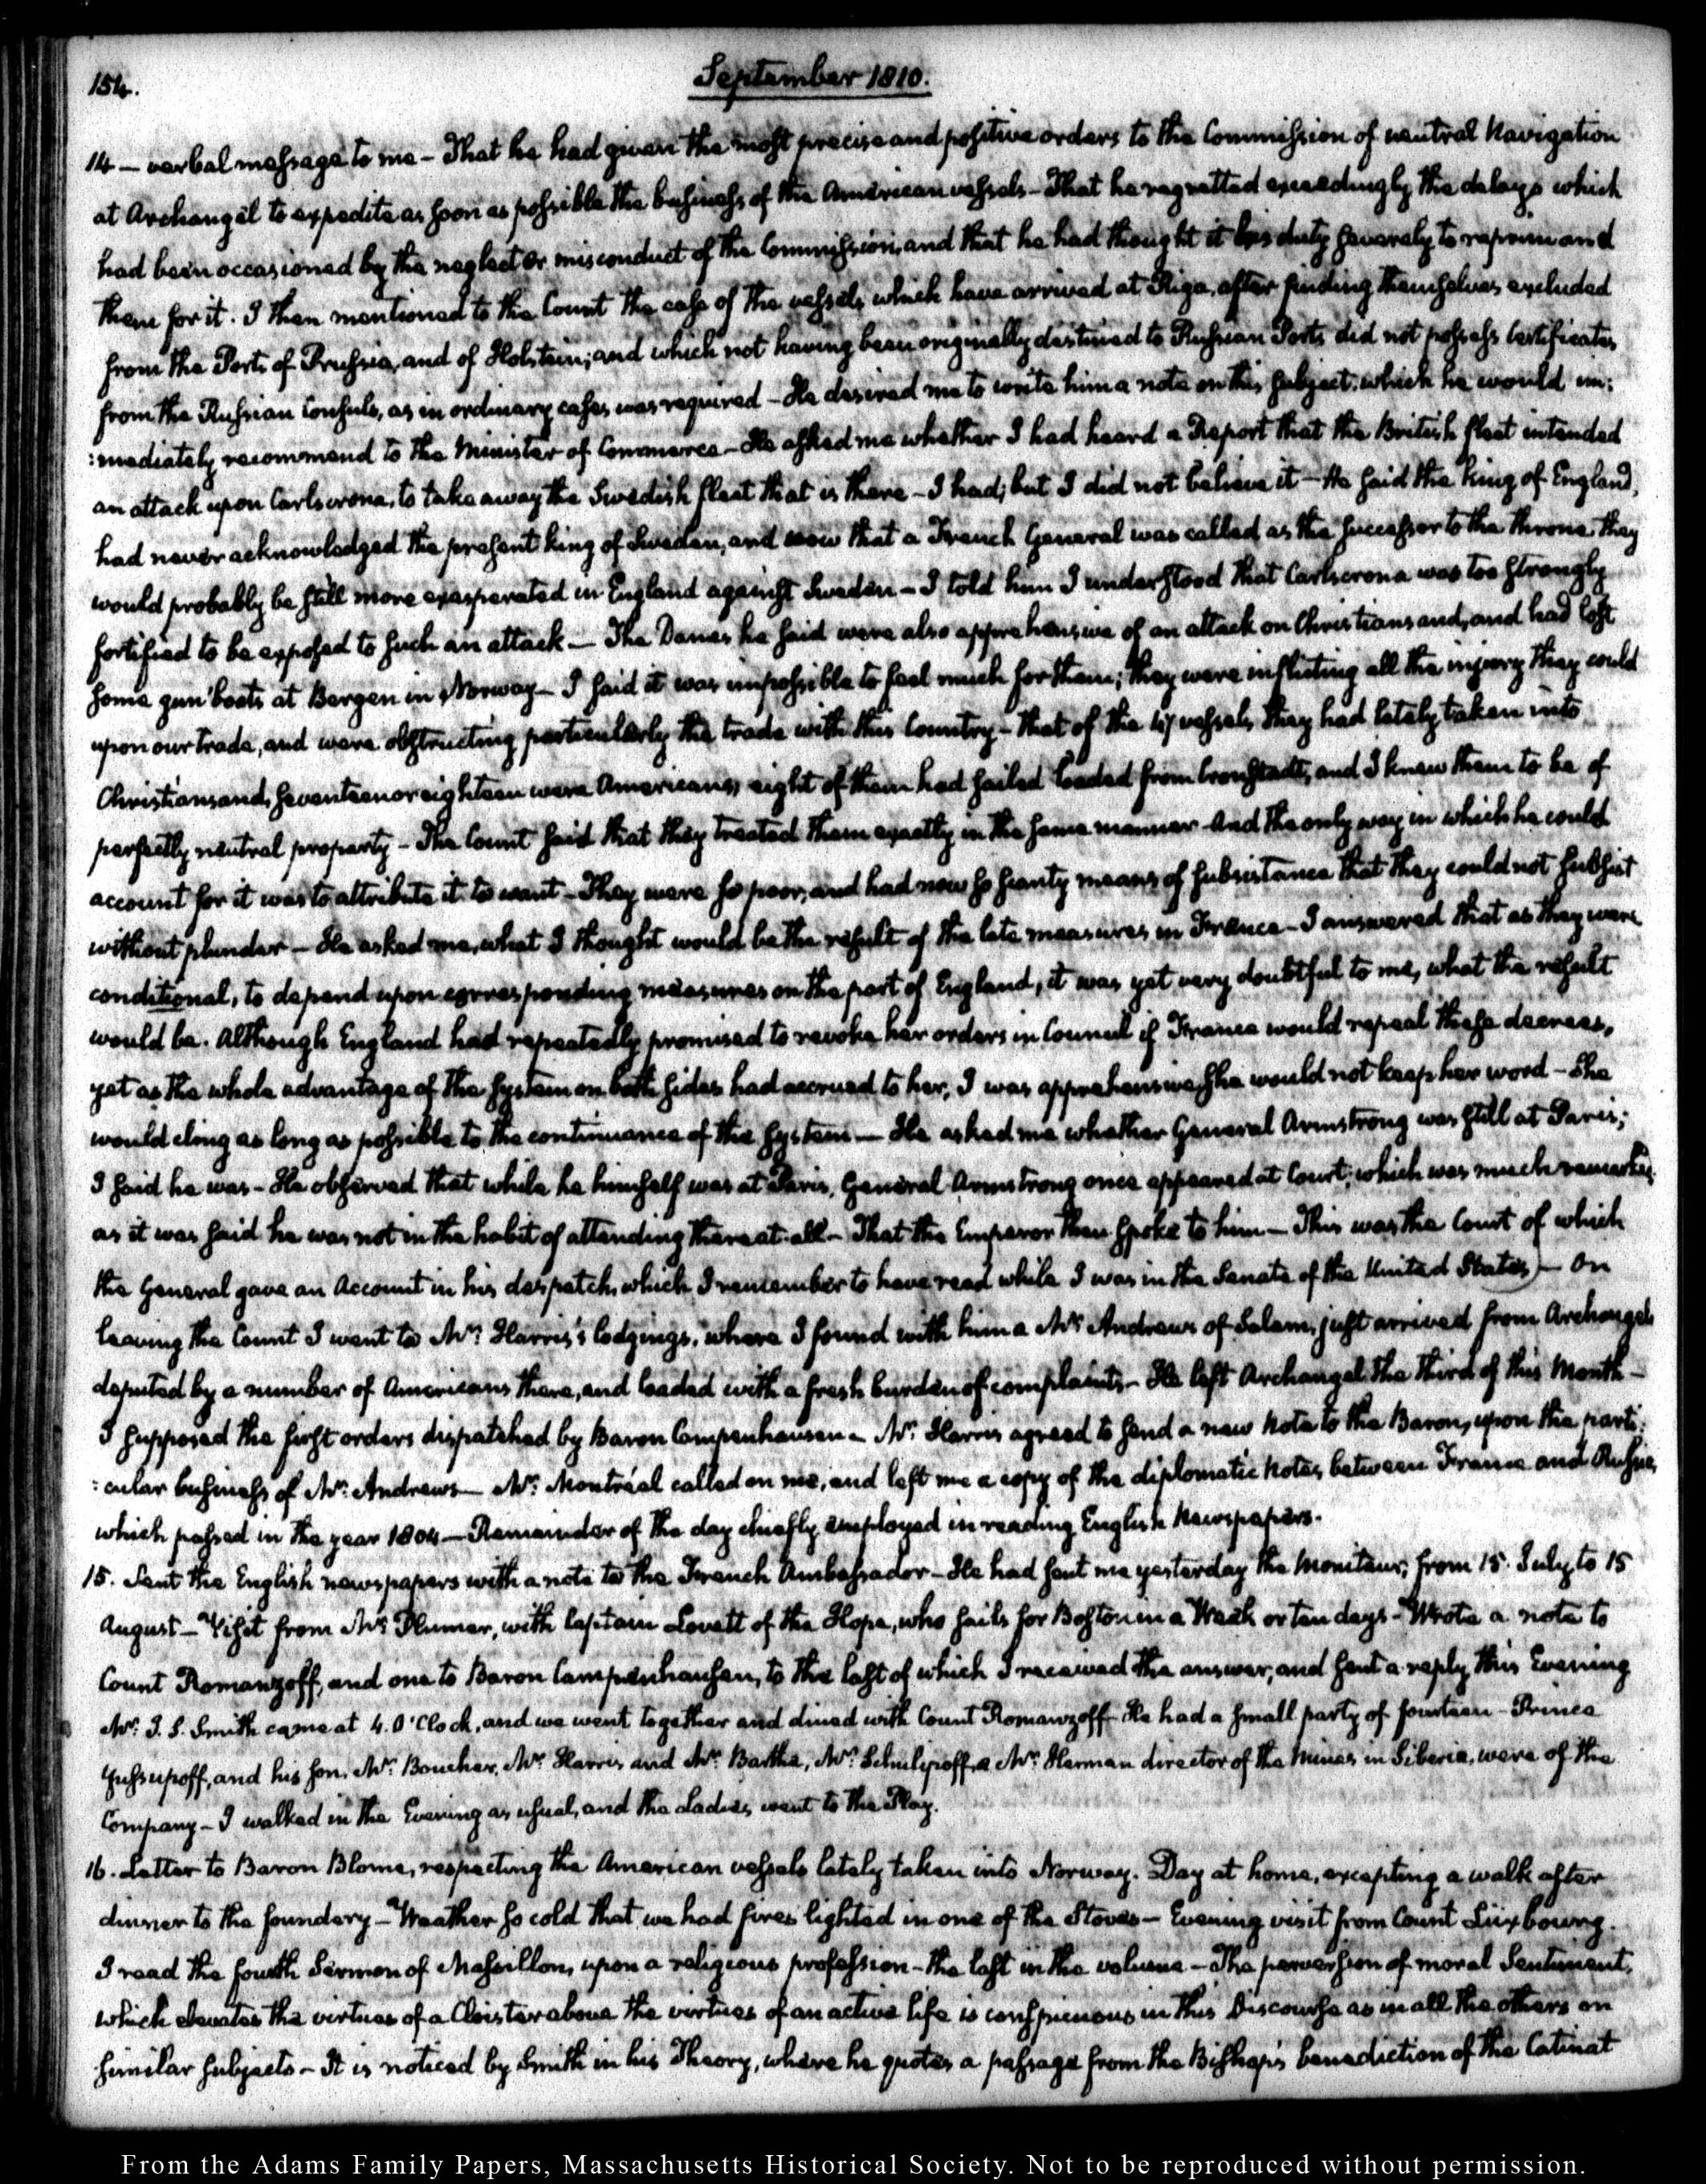 154.
September 1810.
14 — verbal message to me – That he had given the most precise and positive orders to the Commission of neutral Navigation
at Archangel to expedite as soon as possible the business of the American vessels – That he regretted exceedingly the delays which
had been occasioned by the neglect or misconduct of the Commission, and that he had thought it his duty severely to reprimand
them for it. I then mentioned to the Count the case of the vessels which have arrived at Riga, after finding themselves excluded
from the Ports of Prussia, and of Holstein; and which not having been originally destined to Russian Ports did not possess Certificates
from the Russian Consuls, as in ordinary cases was required – He desired me to write him a note on this subject: which he would im:
:mediately recommend to the Minister of Commerce – He asked me whether I had heard a Report that the British fleet intended
an attack upon Carlscrona, to take away the Swedish fleet that is there – I had; but I did not believe it – He said the King of England,
had never acknowledged the present king of Sweden, and now that a French General was called as the successor to the throne they
would probably be still more exasperated in England against Sweden – I told him I understood that Carlscrona was too strongly
fortified to be exposed to such an attack — The Danes he said were also apprehensive of an attack on Christiansand, and had lost
some gun boats at Bergen in Norway – I said it was impossible to feel much for them; they were inflicting all the injury they could
upon our trade, and were obstructing particularly the trade with this Country – That of the 47 vessels they had lately taken into
Christiansand, seventeen or eighteen were Americans, eight of them had sailed loaded from Cronstadt, and I knew them to be of
perfectly neutral property – The Count said that they treated them exactly in the same manner. And the only way in which he could
account for it was to attribute it to want – They were so poor, and had now so scanty means of subsistance that they could not subsist
without plunder – He asked me, what I thought would be the result of the late measures in France – I answered that as they were
conditional, to depend upon corresponding measures on the part of England, it was yet very doubtful to me, what the result
would be. Although England had repeatedly promised to revoke her orders in Council if France would repeal these decrees,
yet as the whole advantage of the system on both sides had accrued to her, I was apprehensive she would not keep her word – She
would cling as long as possible to the continuance of the system — He asked me whether General Armstrong was still at Paris;
I said he was – He observed that while he himself was at Paris, General Armstrong once appeared at Court; which was much remarked
as it was said he was not in the habit of attending there at all – That the Emperor then spoke to him — This was the Court of which
the General gave an Account in his despatch, which I remember to have read while I was in the Senate of the United States) — On
leaving the Count I went to Mr. Harris's lodgings, where I found with him a Mr. Andrews of Salem, just arrived from Archangel
deputed by a number of Americans there, and loaded with a fresh burden of complaints – He left Archangel the third of this Month –
I supposed the first orders dispatched by Baron Campenhausen – Mr. Harris agreed to send a new Note to the Baron, upon the parti:
:cular business of Mr. Andrews — Mr. Montréal called on me, and left me a copy of the diplomatic Notes between France and Russia,
which passed in the year 1804 — Remainder of the day chiefly employed in reading English Newspapers.
15. Sent the English newspapers with a note to the French Ambassador – He had sent me yesterday the Moniteurs, from 15. July to 15
August — Visit from Mr. Plumer, with Captain Lovett of the Hope, who sails for Boston in a Week or ten days – Wrote a note to
Count Romanzoff, and one to Baron Campenhausen, to the last of which I received the answer, and sent a reply this Evening
Mr. J. S. Smith came at 4. O'Clock, and we went together and dined with Count Romanzoff – He had a small party of fourteen – Prince
Yussupoff, and his son, Mr. Boucher, Mr. Harris and Mr. Bartha, Mr. Schulipoff, a Mr. Herman director of the mines in Siberia, were of the
Company – I walked in the Evening as usual, and the Ladies, went to the Play.
16. Letter to Baron Blome, respecting the American vessels lately taken into Norway. Day at home, excepting a walk after
dinner to the foundery – Weather so cold that we had fires lighted in one of the Stoves — Evening visit from Count Luxbourg.
I read the fourth Sermon of Massillon, upon a religious profession – the last in the volume – The perversion of moral Sentiment,
which elevates the virtues of a Cloister above the virtues of an active life is conspicuous in this Discourse as in all the others on
similar subjects – It is noticed by Smith in his Theory, where he quotes a passage from the Bishop's benediction of the Catinat
From the Adams Family Papers, Massachusetts Historical Society. Not to be reproduced without permission.